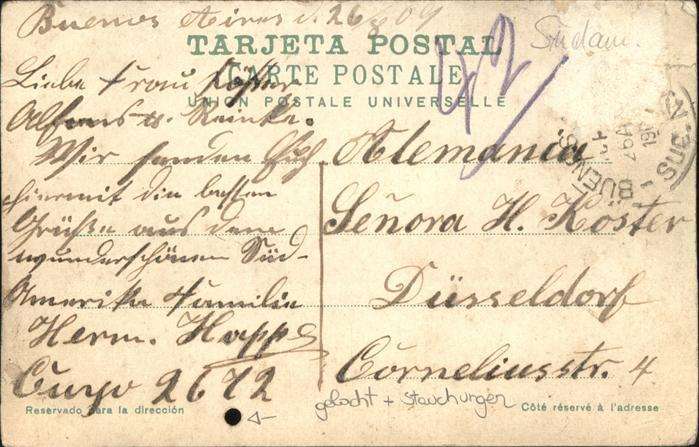 Buenos Aires d. 26/8 09
TARJETA POSTAL
CARTE POSTALE
UNION POSTALE UNIVERSELLE
Südam.
42
Liebe Frau Köster
Alfons u. Reinke.
Wir senden Euch
hiermit die besten
Grüße aus dem
wunderschönen Süd-
Amerika Familie
Herm. Happ
Cuyo 2672
Alemania
Señora H. Köster
Düsseldorf
Corneliusstr. 4
BUENOS
gelocht + Stauchungen
Reservado para la dirección
Côté réservé à l'adresse